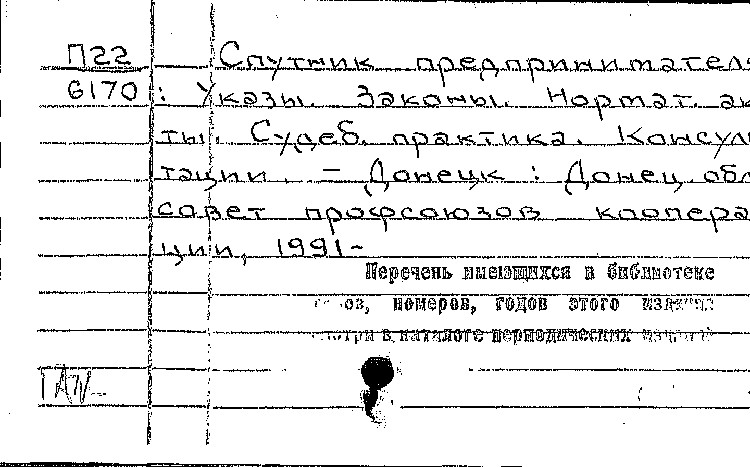 П22 Спутник предпринимателя
6170 : Указы. Законы. Нормат. ак
ты. Судеб. практика. Консуль
тации. – Донецк : Донец обл
совет профсоюзов кооперa
ции, 1991-
Перечень имеющихся в библиотеке
номеров, годов этого издания
смотри в каталоге периодических изданий